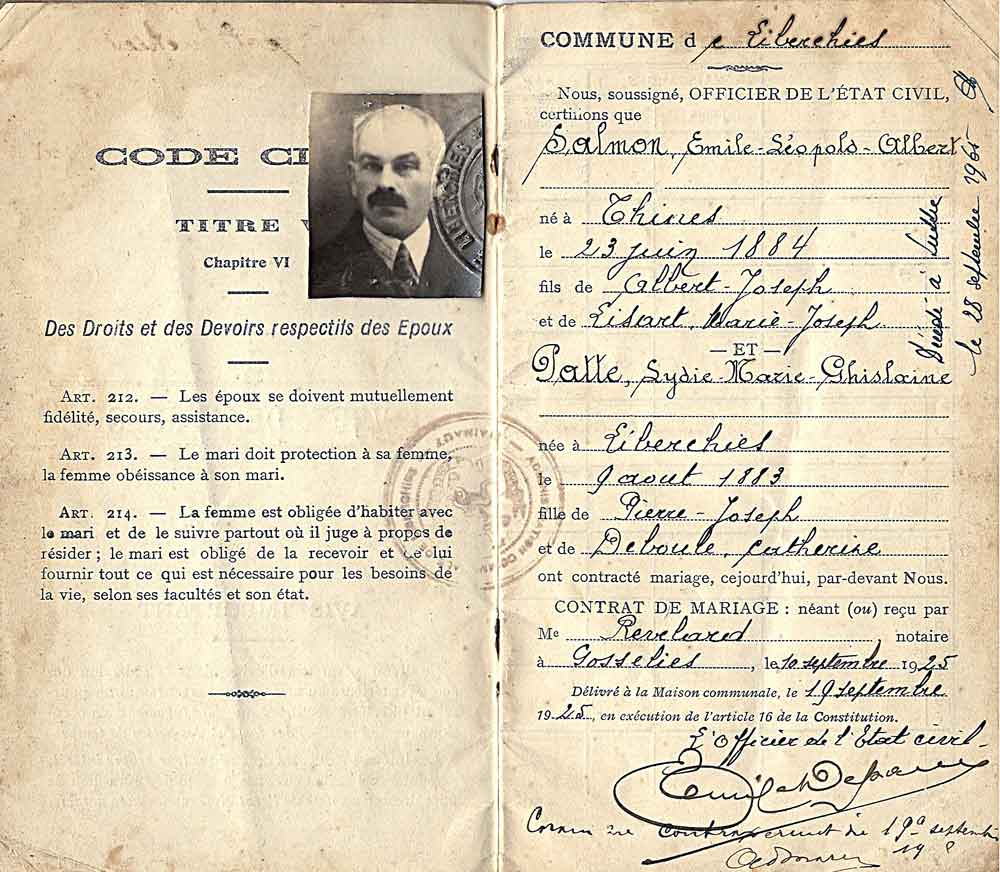 CODE CI
TITRE V
Chapitre VI
Des Droits et des Devoirs respectifs des Epoux
ART. 212. — Les époux se doivent mutuellement
fidélité, secours, assistance.
ART. 213. — Le mari doit protection à sa femme,
la femme obéissance à son mari.
ART. 214. — La femme est obligée d'habiter avec
le mari et de le suivre partout où il juge à propos de
résider ; le mari est obligé de la recevoir et de lui
fournir tout ce qui est nécessaire pour les besoins de
la vie, selon ses facultés et son état.
LIBERCHIES
COMMUNE de Liberchies
Nous, soussigné, OFFICIER DE L'ÉTAT CIVIL,
certifions que
Salmon, Emile-Léopold-Albert
né à Thines
le 23 juin 1884
fils de Albert-Joseph
et de Lisart, Marie-Joseph
— ET —
Patte, Lydie-Marie-Ghislaine
née à Liberchies
le 9 aout 1883
fille de Pierre-Joseph
et de Deboule, Catherine
ont contracté mariage, cejourd'hui, par-devant Nous.
CONTRAT DE MARIAGE : néant (ou) reçu par
Me notaire
à Gosselies, le 10 septembre 1925
Délivré à la Maison communale, le 19 septembre
1925, en exécution de l'article 16 de la Constitution.
L'Officier de l'Etat civil
septembre
à Luttre
le 28 septembre